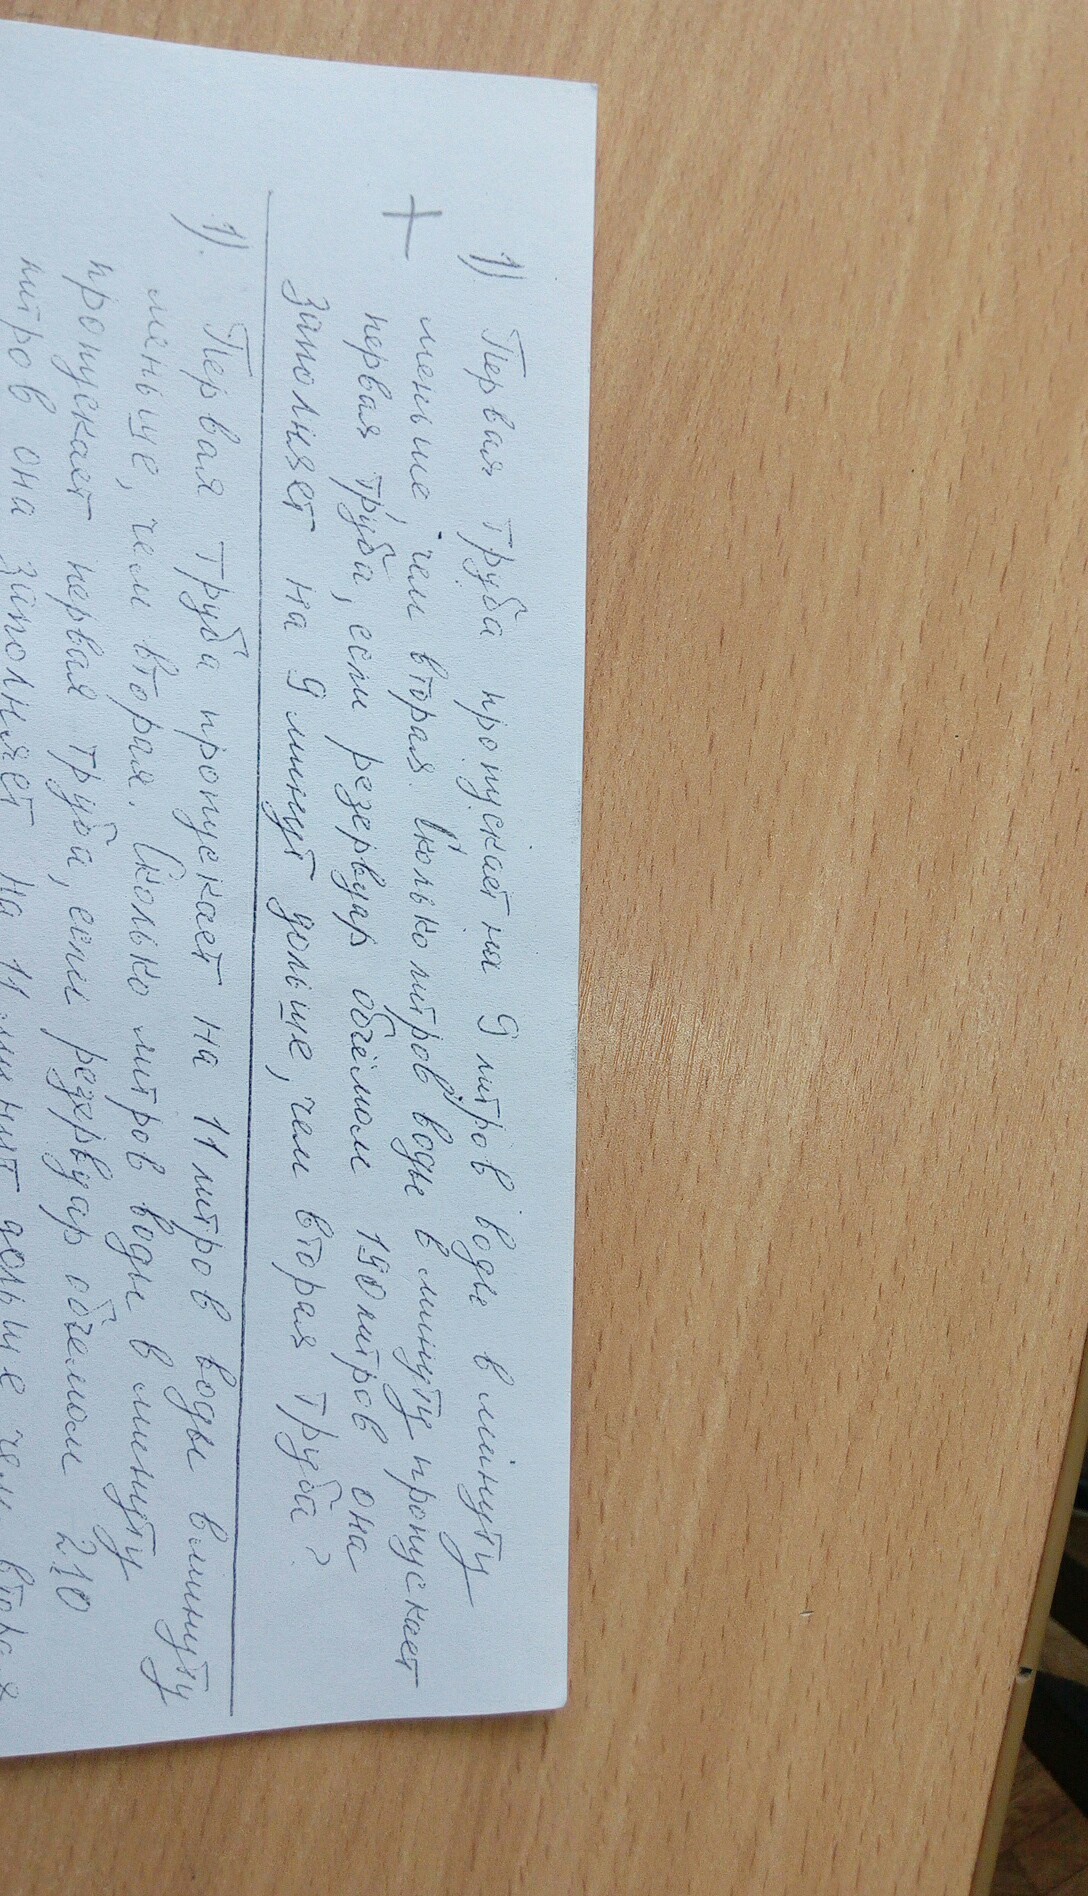 1) Первая труба пропускает на 9 литров воды в минуту
меньше, чем вторая. Сколько литров воды в минуту пропускает
+ первая труба, если резервуар объёмом 190 литров она
заполняет на 9 минут дольше, чем вторая труба?
1). Первая труба пропускает на 11 литров воды в минуту
меньше, чем вторая. Сколько литров воды в минуту
пропускает первая труба, если резервуар объемом 210
литров она заполняет на 11 минут дольше чем вторая